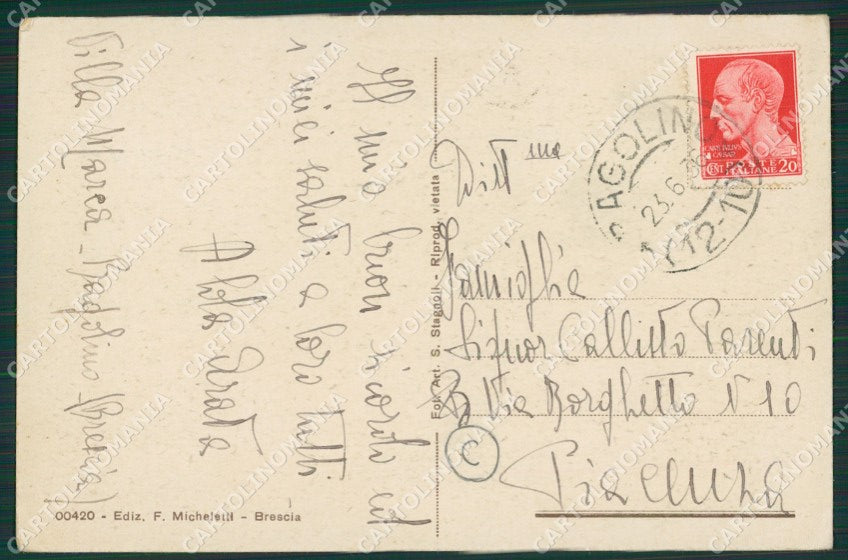 Il mio buon ricordo ed
i miei saluti a loro tutti
Alda Arata
Villa Marca - Bagolino (Brescia)
00420 - Ediz. F. Micheletti - Brescia
Fot. Art. S. Stagnoli - Riprod. vietata
CENT POSTE ITALIANE 20
BAGOLINO
23.6.
12-10
Distma
Famiglia
Signor Callisto Parenti
Via Borghetto N 10
Piacenza
C
CARTOLINOMANIA